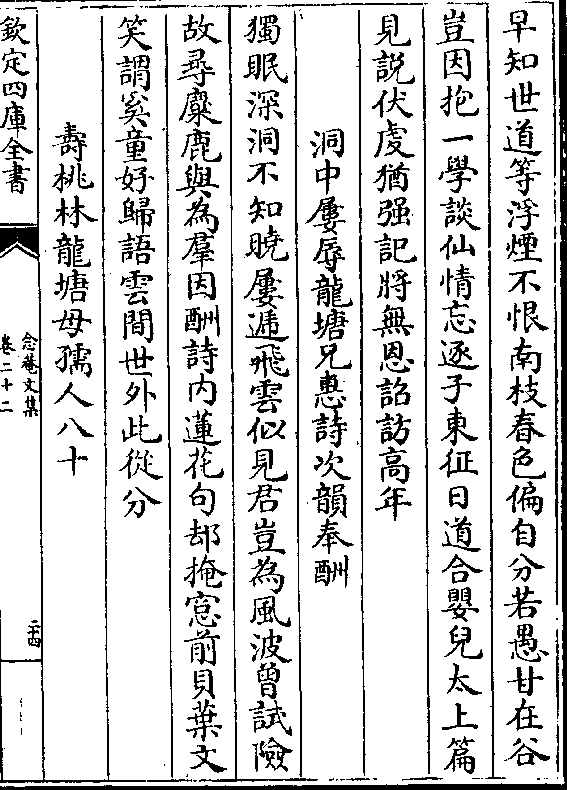 早知世道等浮煙不恨南枝春色偏自分若愚甘在谷
豈因抱一學談仙情忘逐子東征日道合嬰兒太上篇
見説伏䖍猶强記將無恩詔訪高年
洞中屢辱龍塘兄惠詩次韻奉酬
獨眠深洞不知曉屢遞飛雲似見君豈為風波曾試險
故尋麋鹿與為羣因酬詩内蓮花句却掩窓前貝葉文
笑謂奚童好歸語雲間世外此從分
壽桃林龍塘母孺人八十
欽定四庫全書
念菴文集
卷二十二
二十四